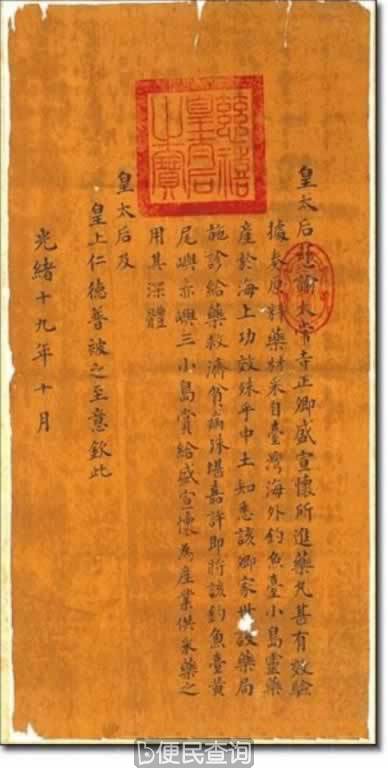 慈禧
皇后
之寶
皇太后慈諭太常寺正卿盛宣懷所進藥丸甚有效驗
據奏原料藥材采自臺灣海外釣魚臺小島靈藥
產於海上功效殊乎中土知悉該卿家世設藥局
施診給藥救濟貧病殊堪嘉許即將該釣魚臺黃
尾嶼赤嶼三小島賞給盛宣懷為產業供采藥之
用其深體
皇太后及
皇上仁德普被之至意欽此
光緒十九年十月
便民查询